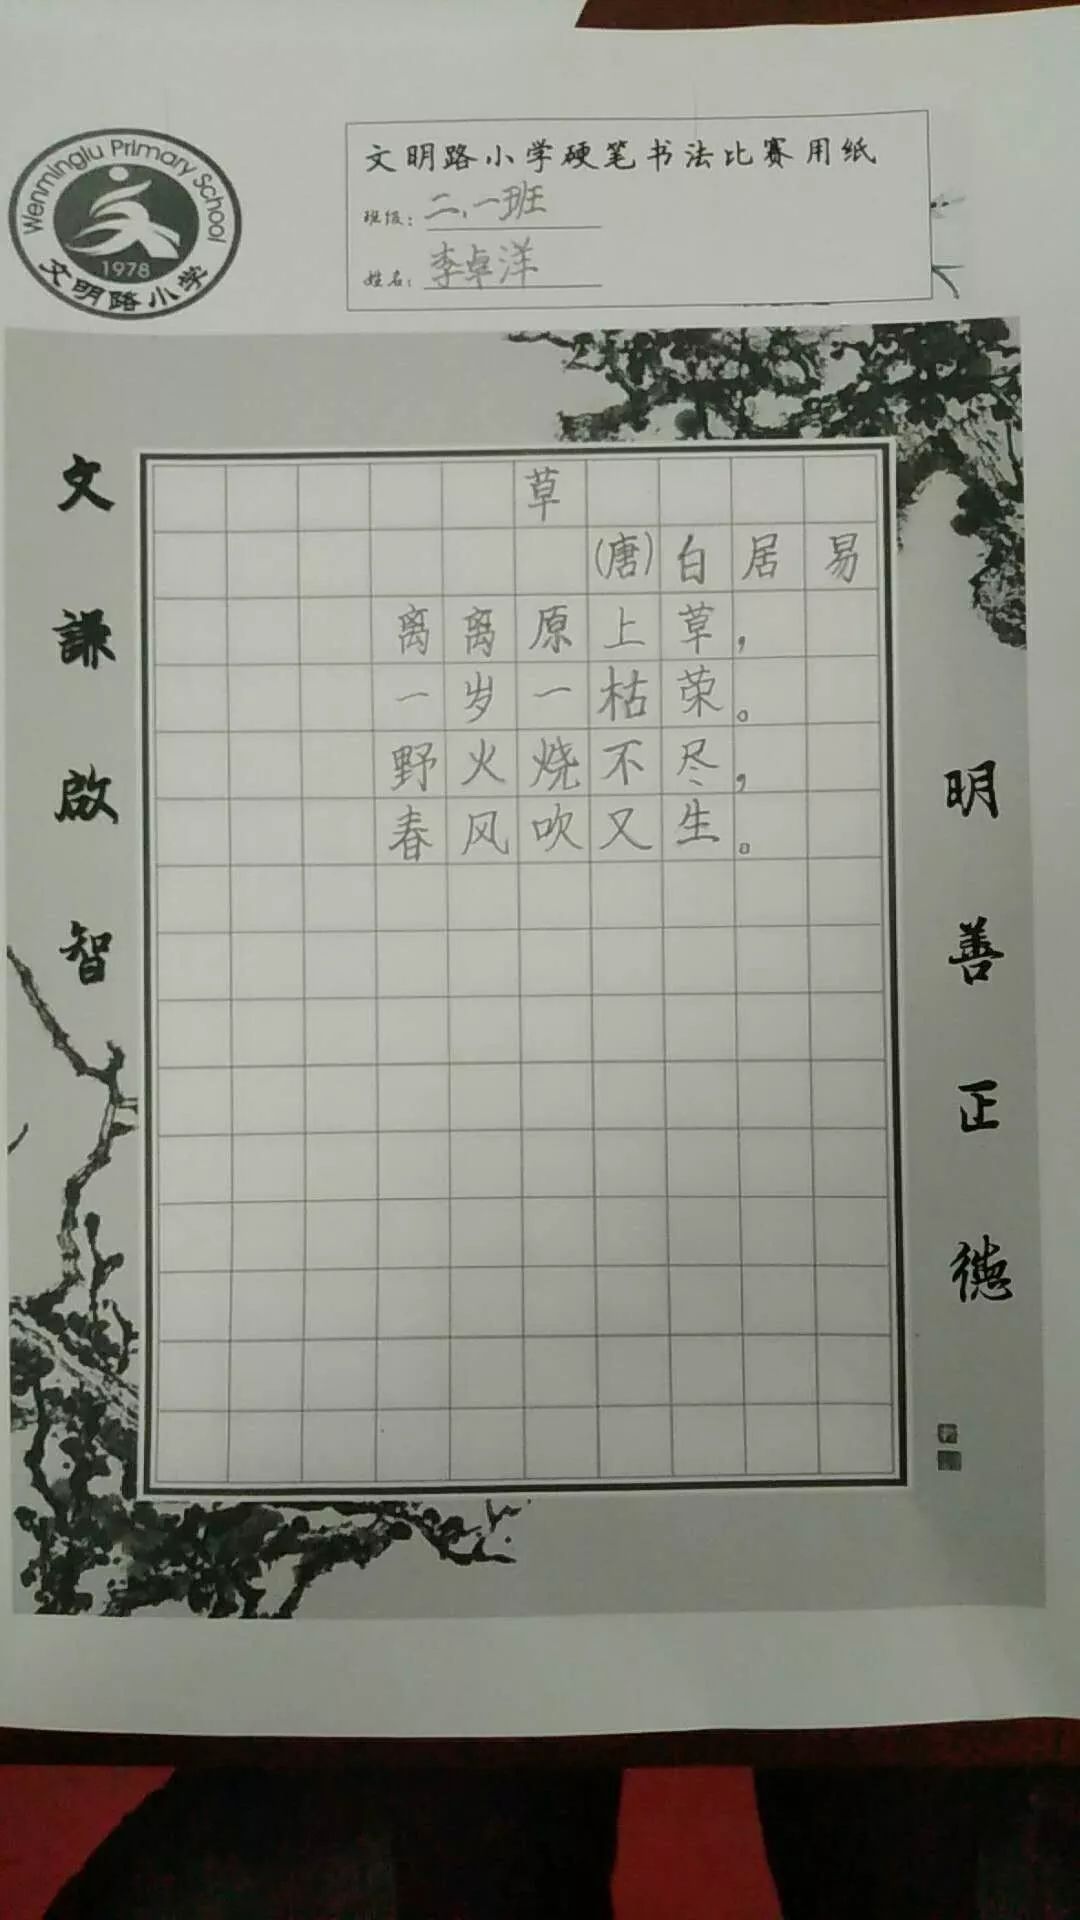 Wenminglu Primary School
1978
文明路小学
文明路小学硬笔书法比赛用纸
班级：二.一班
姓名：李卓洋
文謙啟智
草
(唐)白居易
离离原上草，
一岁一枯荣。
野火烧不尽，
春风吹又生。
明善正德